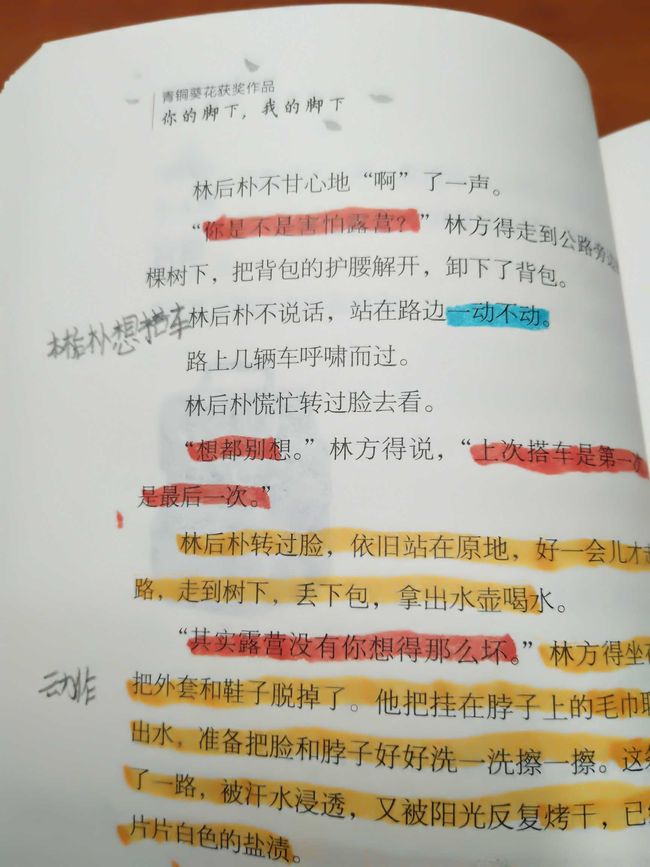 青铜葵花获奖作品
你的脚下，我的脚下
林后朴不甘心地“啊”了一声。
“你是不是害怕露营？”林方得走到公路旁
棵树下，把背包的护腰解开，卸下了背包。
林后朴想搭车
林后朴不说话，站在路边一动不动。
路上几辆车呼啸而过。
林后朴慌忙转过脸去看。
“想都别想。”林方得说，“上次搭车是第一
是最后一次。”
林后朴转过脸，依旧站在原地，好一会儿才
路，走到树下，丢下包，拿出水壶喝水。
“其实露营没有你想得那么坏。”林方得坐
动作
把外套和鞋子脱掉了。他把挂在脖子上的毛巾
出水，准备把脸和脖子好好洗一洗擦一擦。这
了一路，被汗水浸透，又被阳光反复烤干，已
片片白色的盐渍。